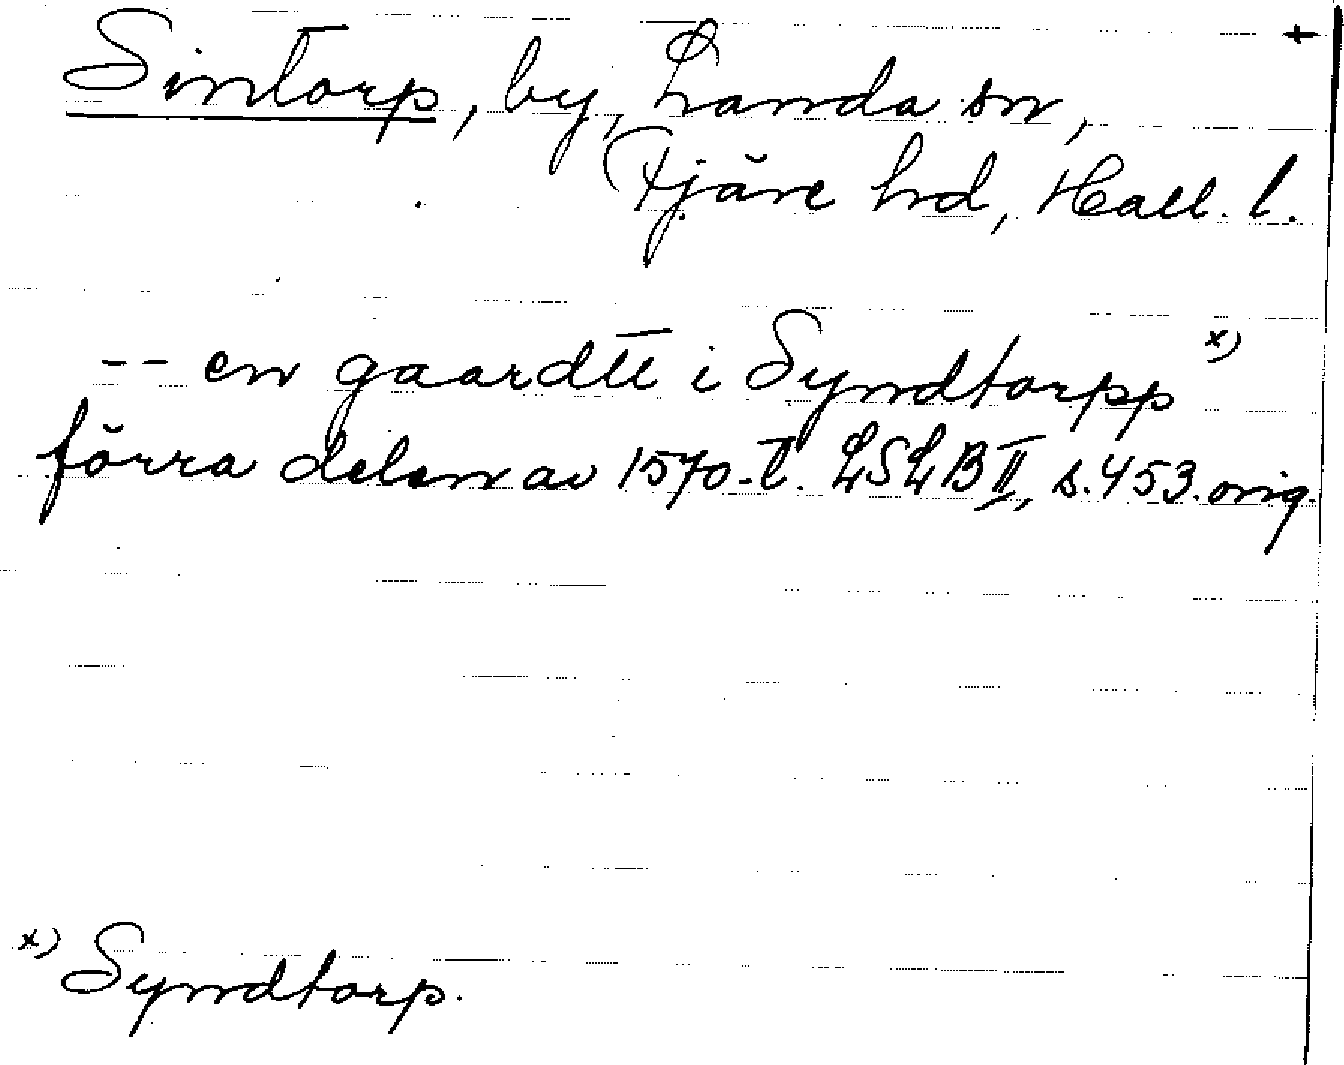 +
Sintorp, by, Landa sn,
Fjäre hrd, Hall. l.
-- en gaardtt i Syndtorpp x)
förra delen av 1570-t. LSLB II, s. 453. orig.
x) Syndtorp.